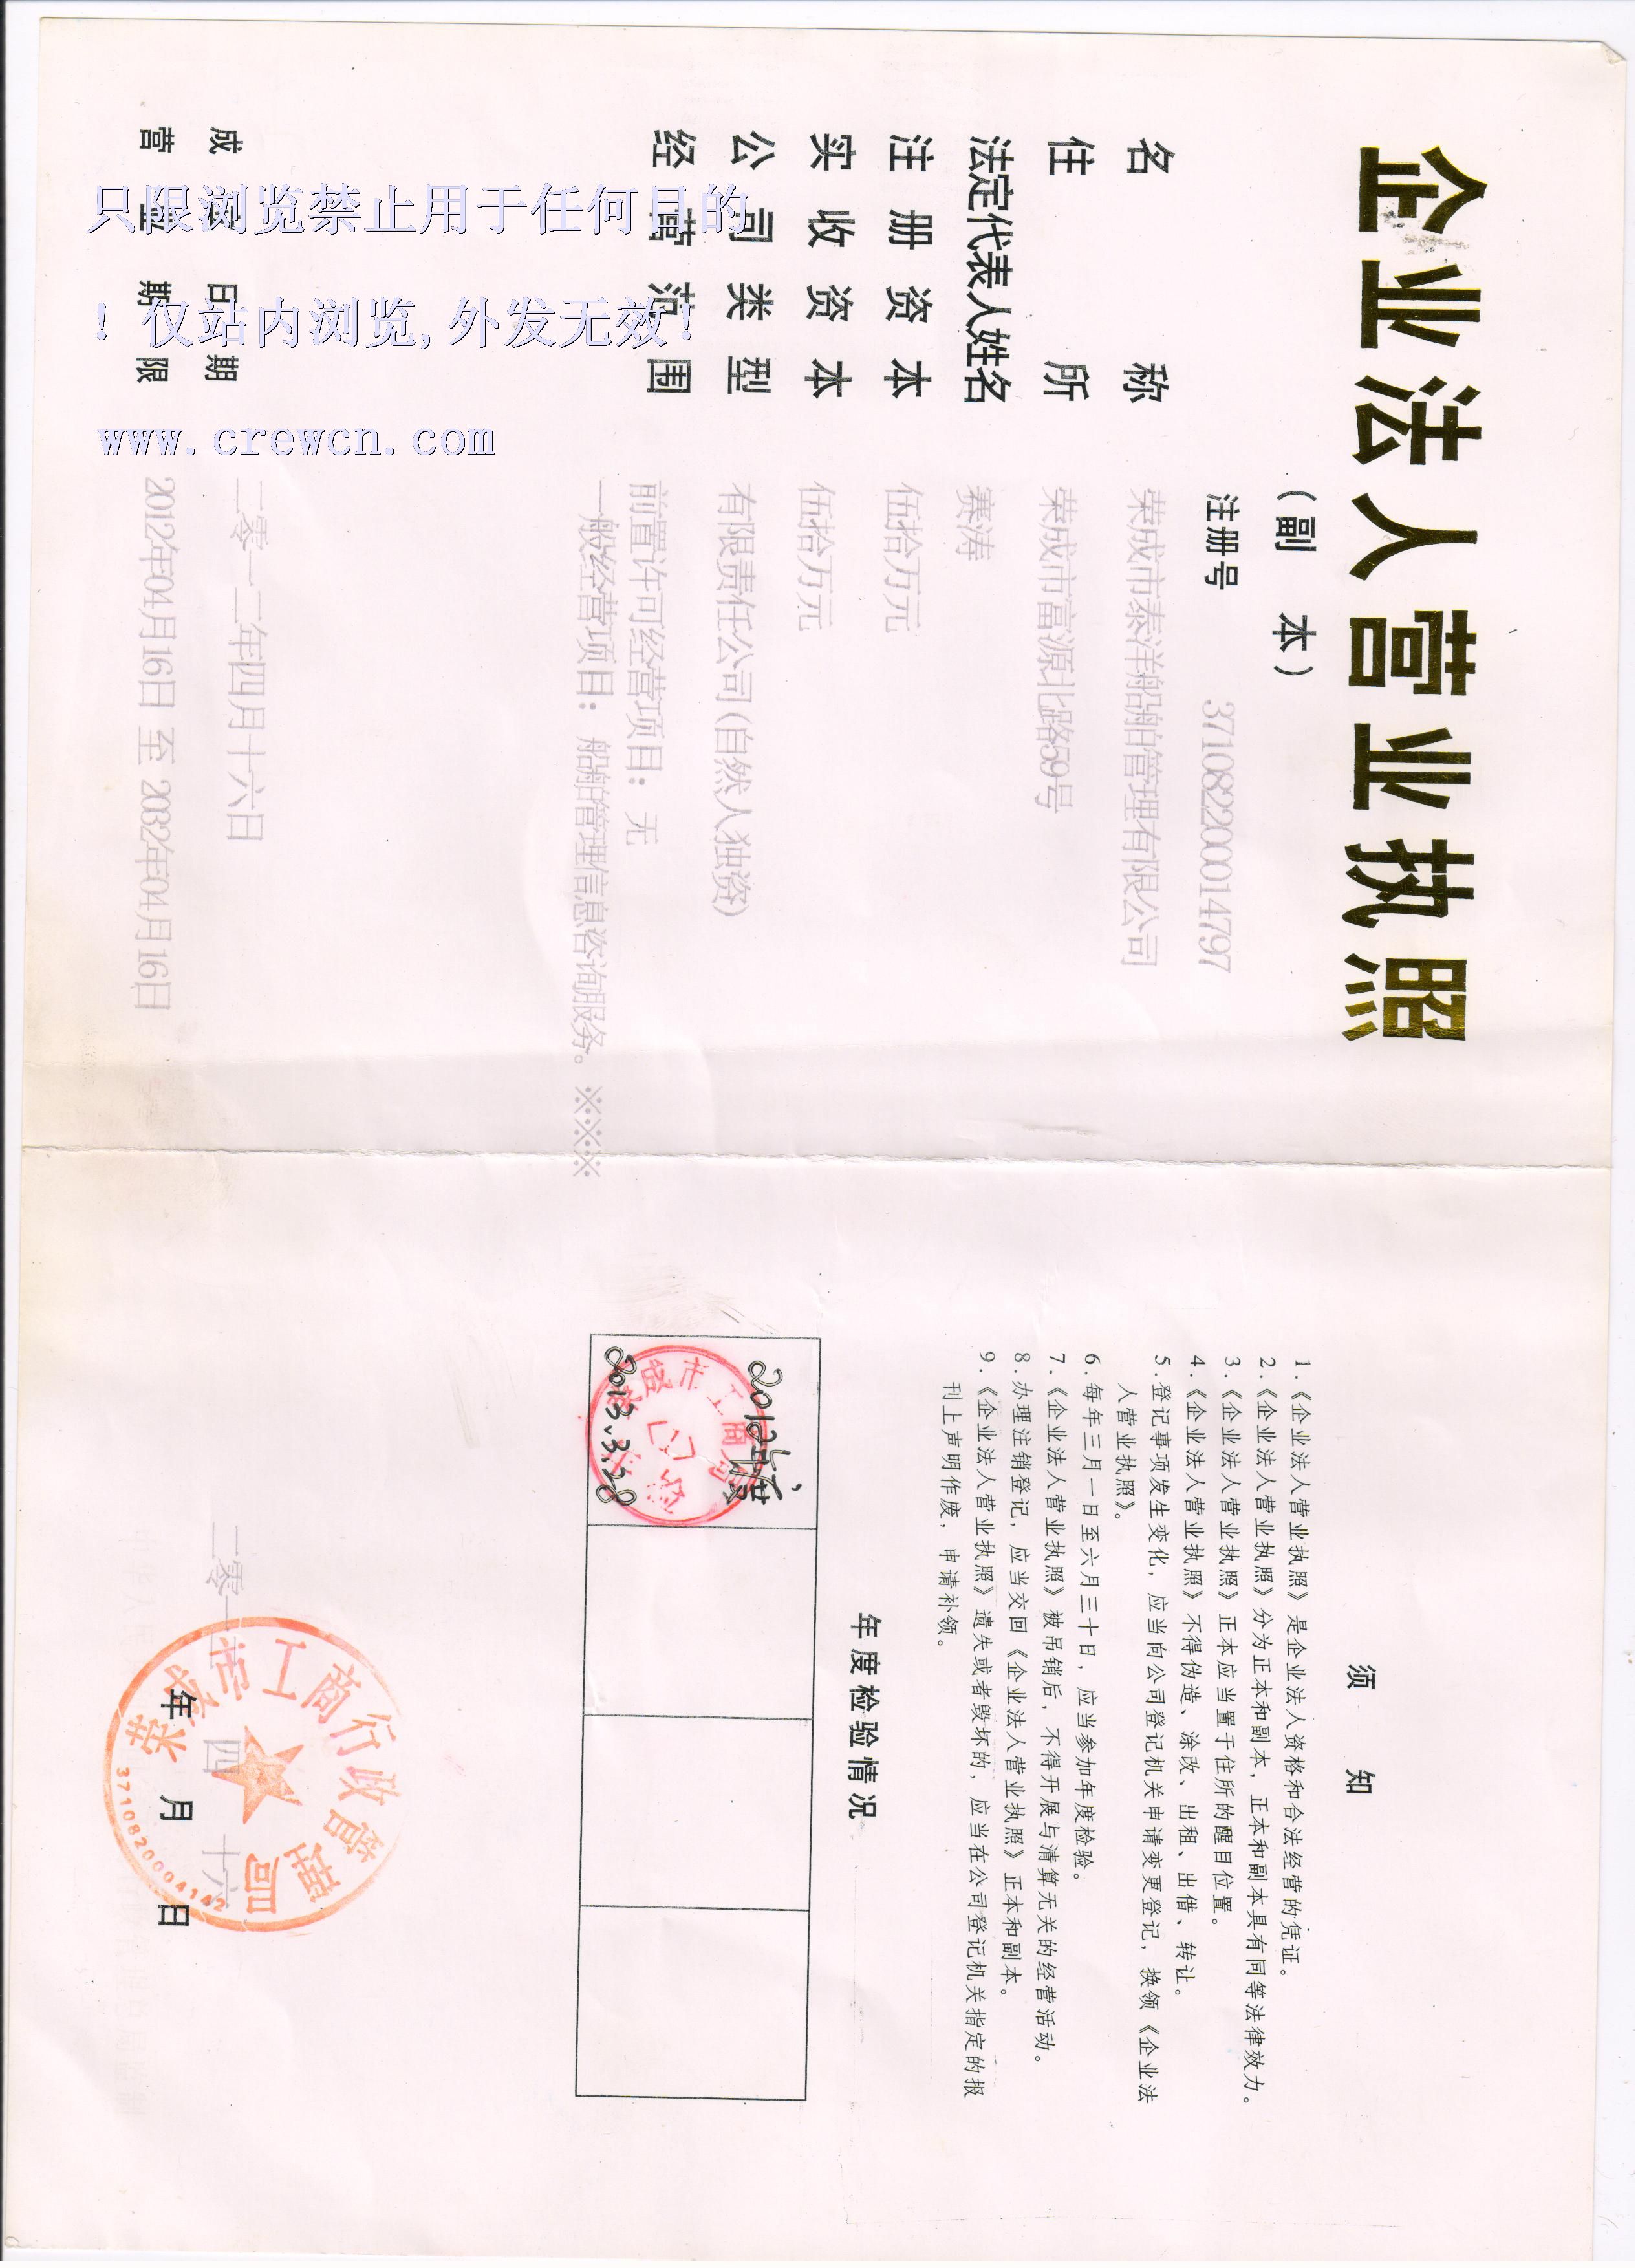 企业法人营业执照
（副 本）
注册号 371082200014797
名 称 荣成市泰洋船舶管理有限公司
住 所 荣成市富源北路59号
法定代表人姓名 赛涛
注册资本 伍拾万元
实收资本 伍拾万元
公司类型 有限责任公司(自然人独资)
经营范围 前置许可经营项目：无
一般经营项目：船舶管理信息咨询服务。※※※※
成立日期 二零一二年四月十六日
营业期限 2012年04月16日 至 2032年04月16日
须 知
1.《企业法人营业执照》是企业法人资格和合法经营的凭证。
2.《企业法人营业执照》分为正本和副本，正本和副本具有同等法律效力。
3.《企业法人营业执照》正本应当置于住所的醒目位置。
4.《企业法人营业执照》不得伪造、涂改、出租、出借、转让。
5.登记事项发生变化，应当向公司登记机关申请变更登记，换领《企业法
人营业执照》。
6.每年三月一日至六月三十日，应当参加年度检验。
7.《企业法人营业执照》被吊销后，不得开展与清算无关的经营活动。
8.办理注销登记，应当交回《企业法人营业执照》正本和副本。
9.《企业法人营业执照》遗失或者毁坏的，应当在公司登记机关指定的报
刊上声明作废，申请补领。
年度检验情况
2012年度
2013.3.28
荣成市工商行政管理局
3710820004142
二零一二年四月十六日
只限浏览禁止用于任何目的
！仅站内浏览,外发无效！
www.crewcn.com